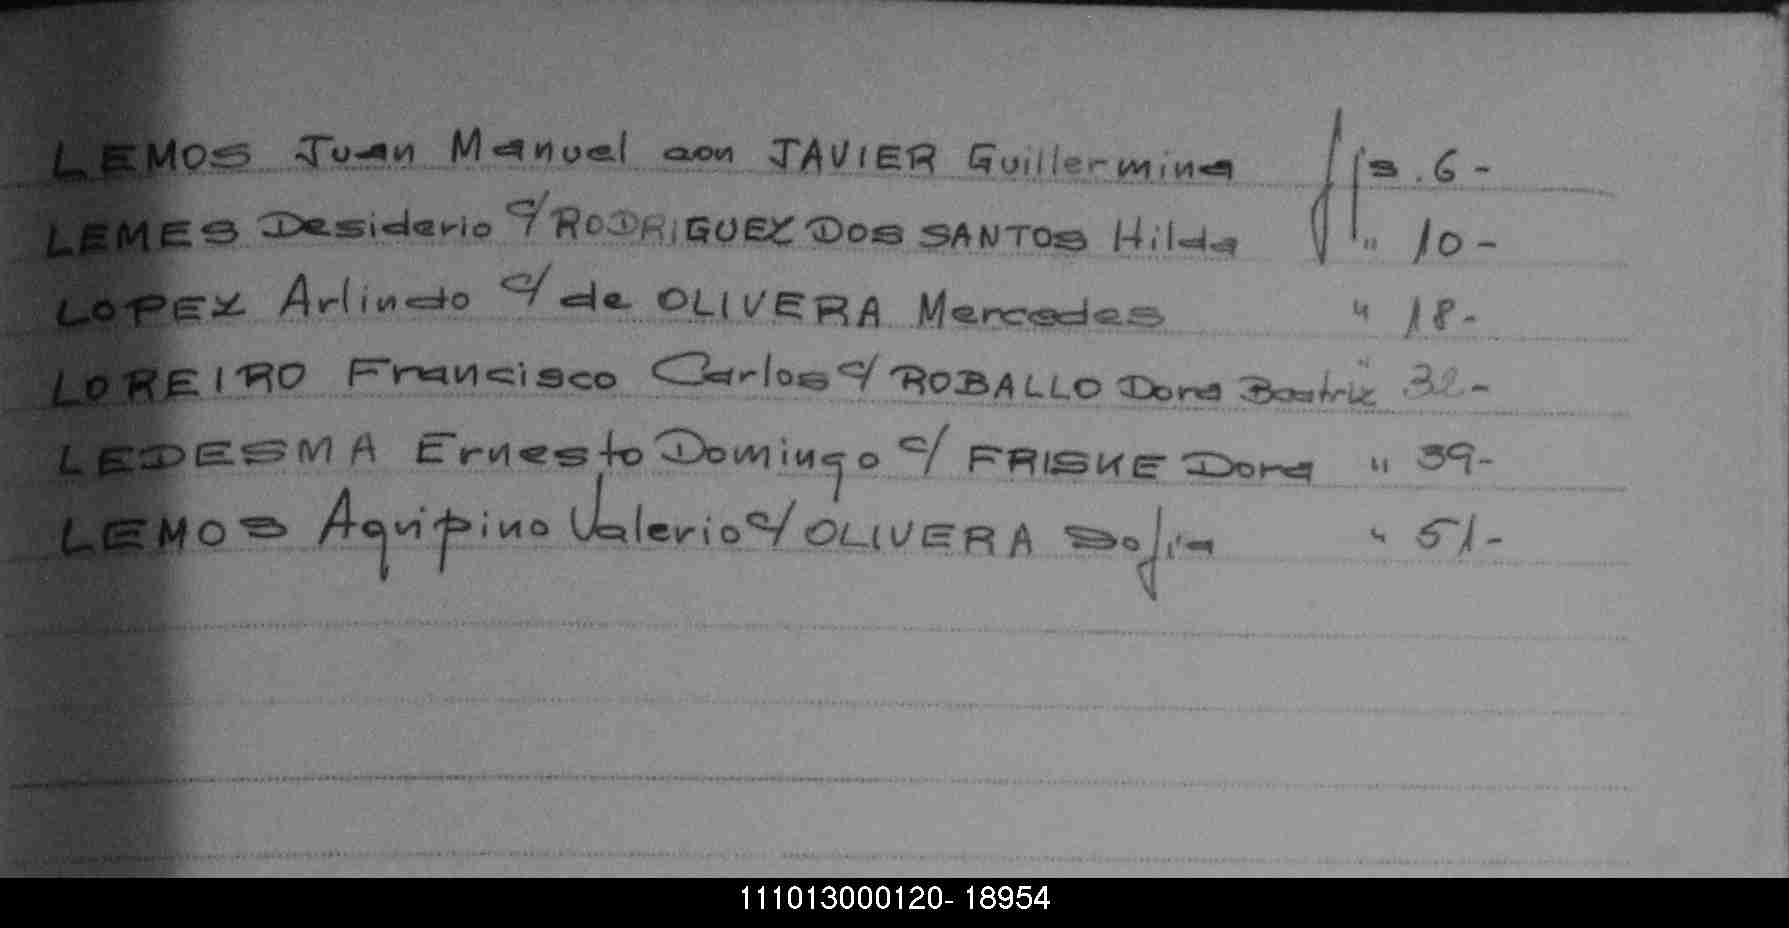 LEMOS Juan Manuel con JAVIER Guillermina fjs. 6-
LEMES Desiderio c/ RODRIGUEZ DOS SANTOS Hilda " 10-
LOPEZ Arlindo c/ de OLIVERA Mercedes " 18-
LOREIRO Francisco Carlos c/ ROBALLO Dora Beatriz " 32-
LEDESMA Ernesto Domingo c/ FRISKE Dora " 39-
LEMOS Agripino Valerio c/ OLIVERA Sofia " 51-
111013000120- 18954